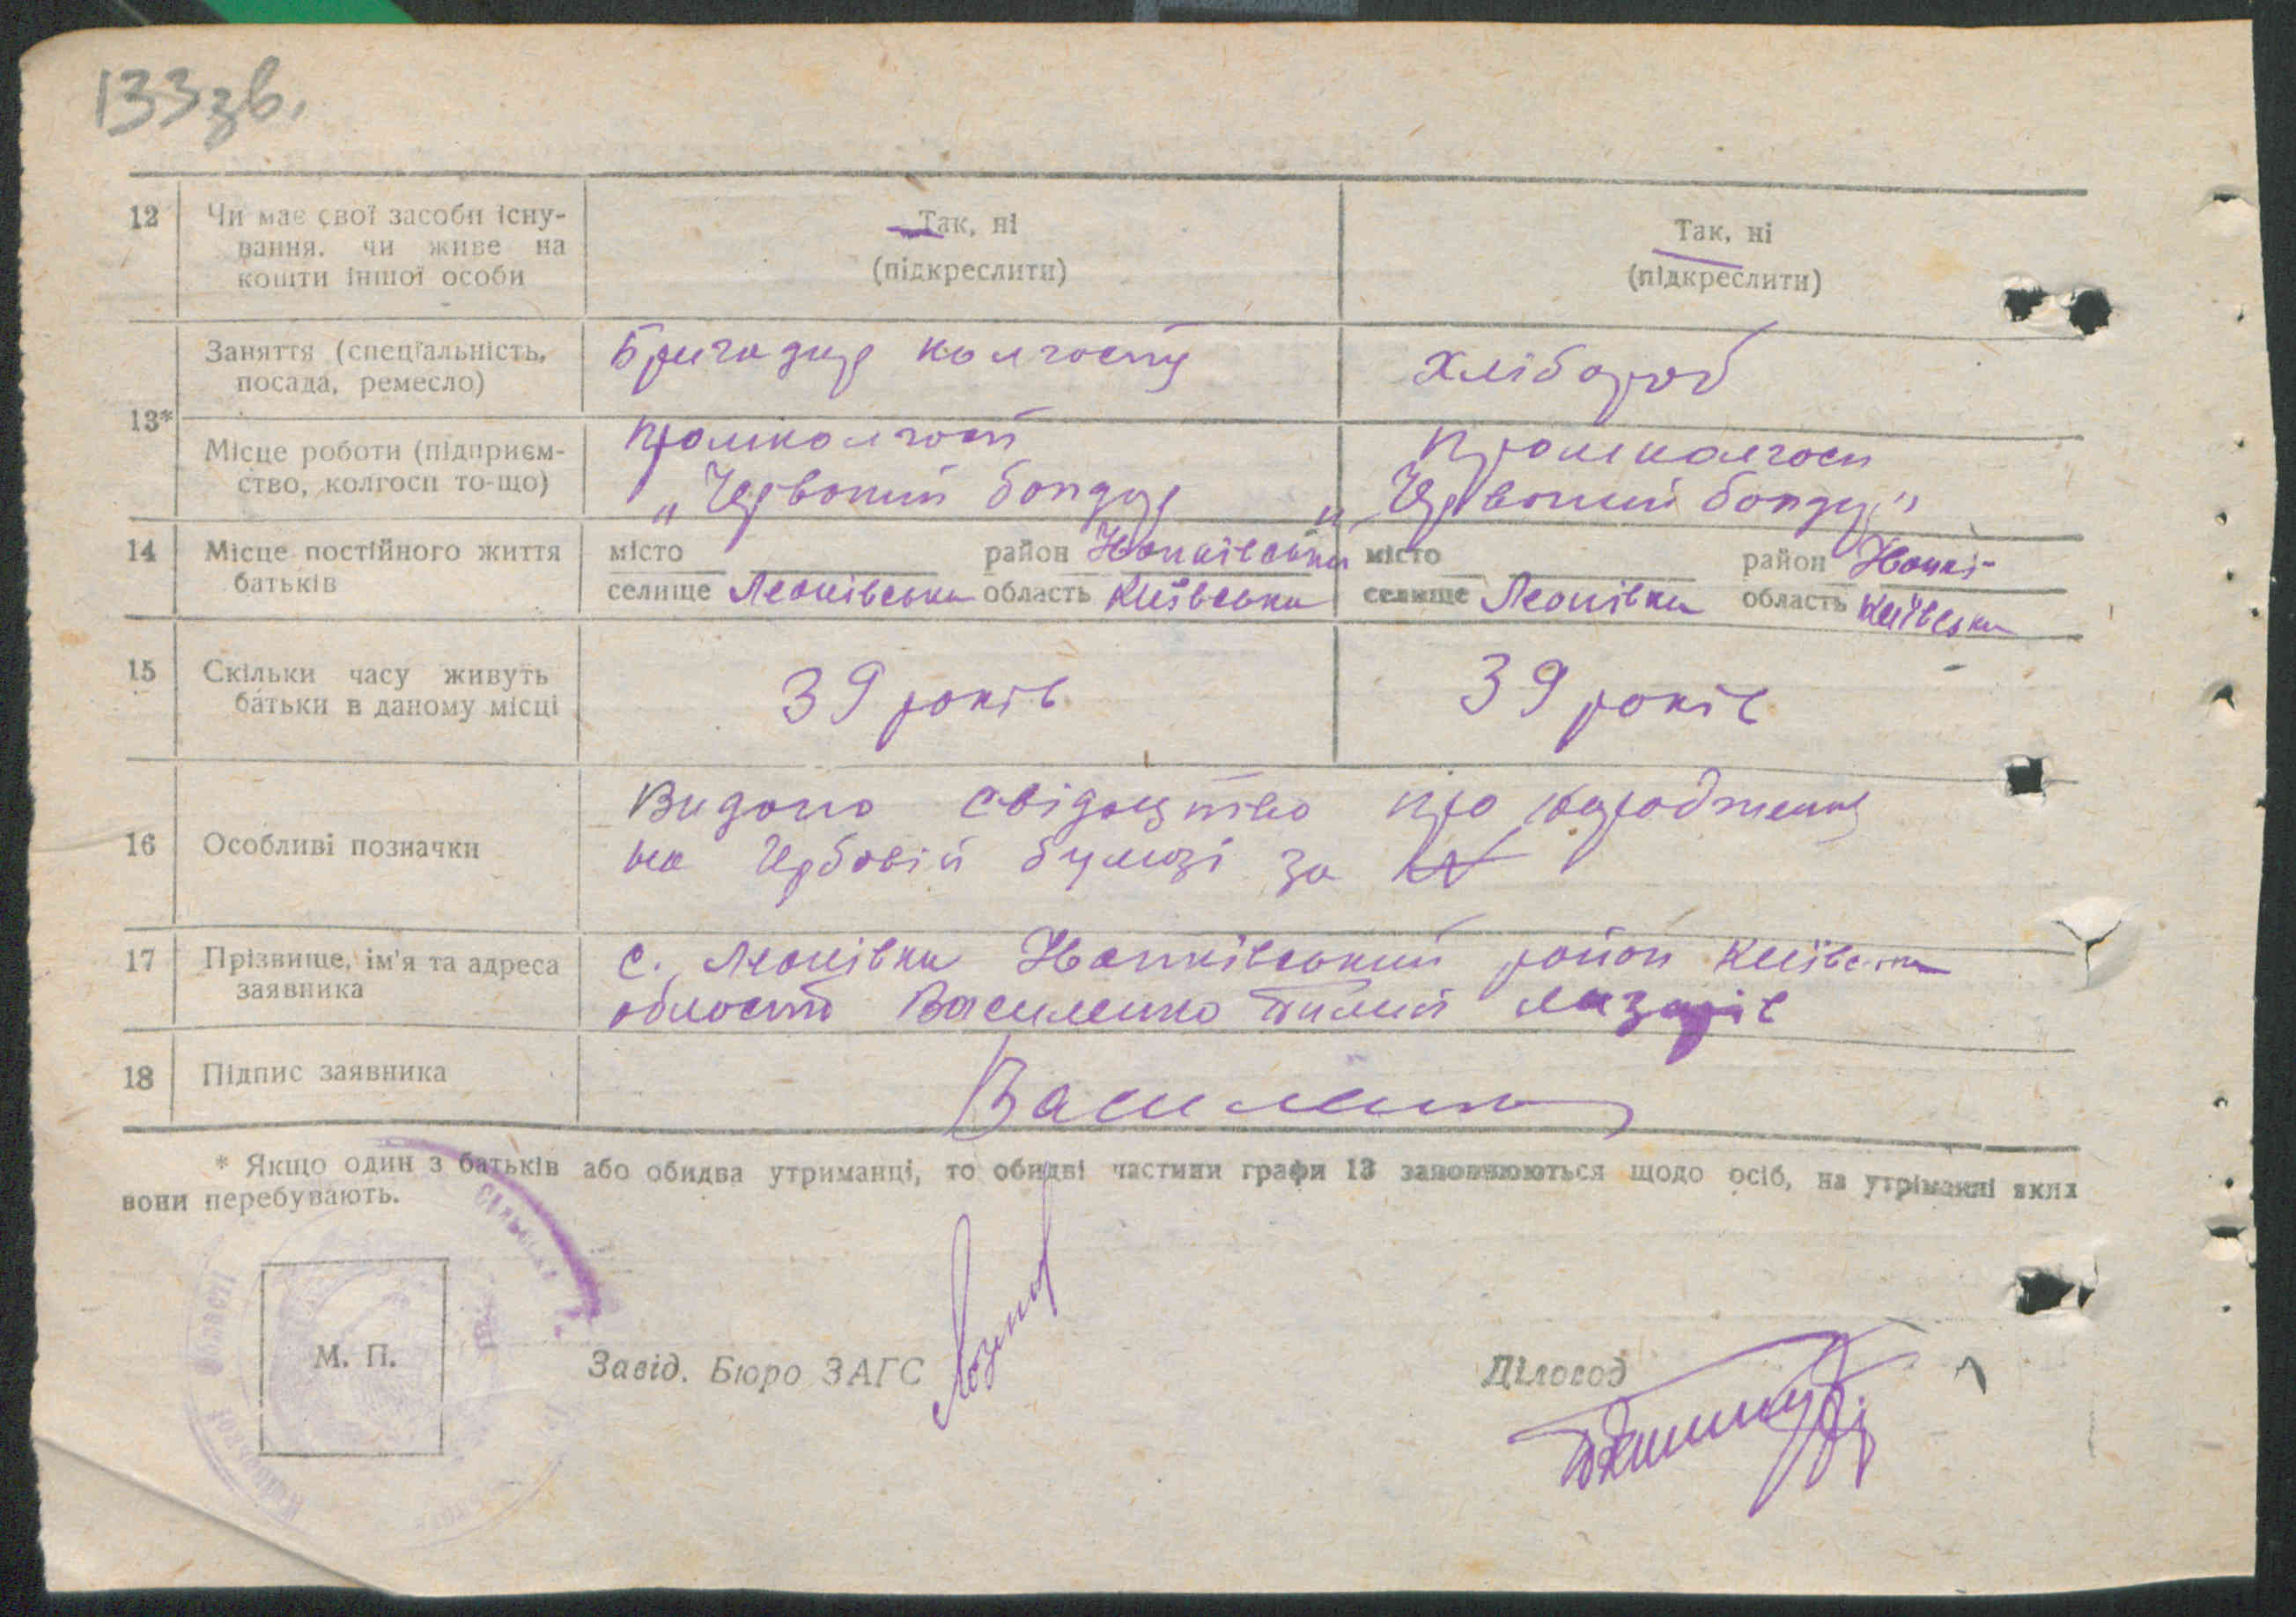 133зв.
12 Чи має свої засоби існу-
вання. чи живе на
кошти іншої особи
Так, ні
(підкреслити)
Так, ні
(підкреслити)
13*
Заняття (спеціальність,
посада, ремесло)
Бригадир колгоспу
Хлібороб
Місце роботи (підприєм-
ство, колгосп то-що)
Промколгосп
„Червоний бондар
Промколгосп
„Червоний бондар"
14 Місце постійного життя
батьків
місто район
селище Леонівська область Київська
місто район
селище Леонівка область Київська
15 Скільки часу живуть
батьки в даному місці
39 років
39 років
16 Особливі позначки
Видано свідоцтво про народження
на гербовій бумазі за N
17 Прізвище, ім'я та адреса
заявника
с. Леонівка район Київська
область Василенко Тимій Лазарів
18 Підпис заявника
Василенко
* Якщо один з батьків або обидва утриманці, то обидві частини графи 13 заповнюються щодо осіб, на утриманні яких
вони перебувають.
Сільська
області
М. П.
Завід. Бюро ЗАГС
Діловод